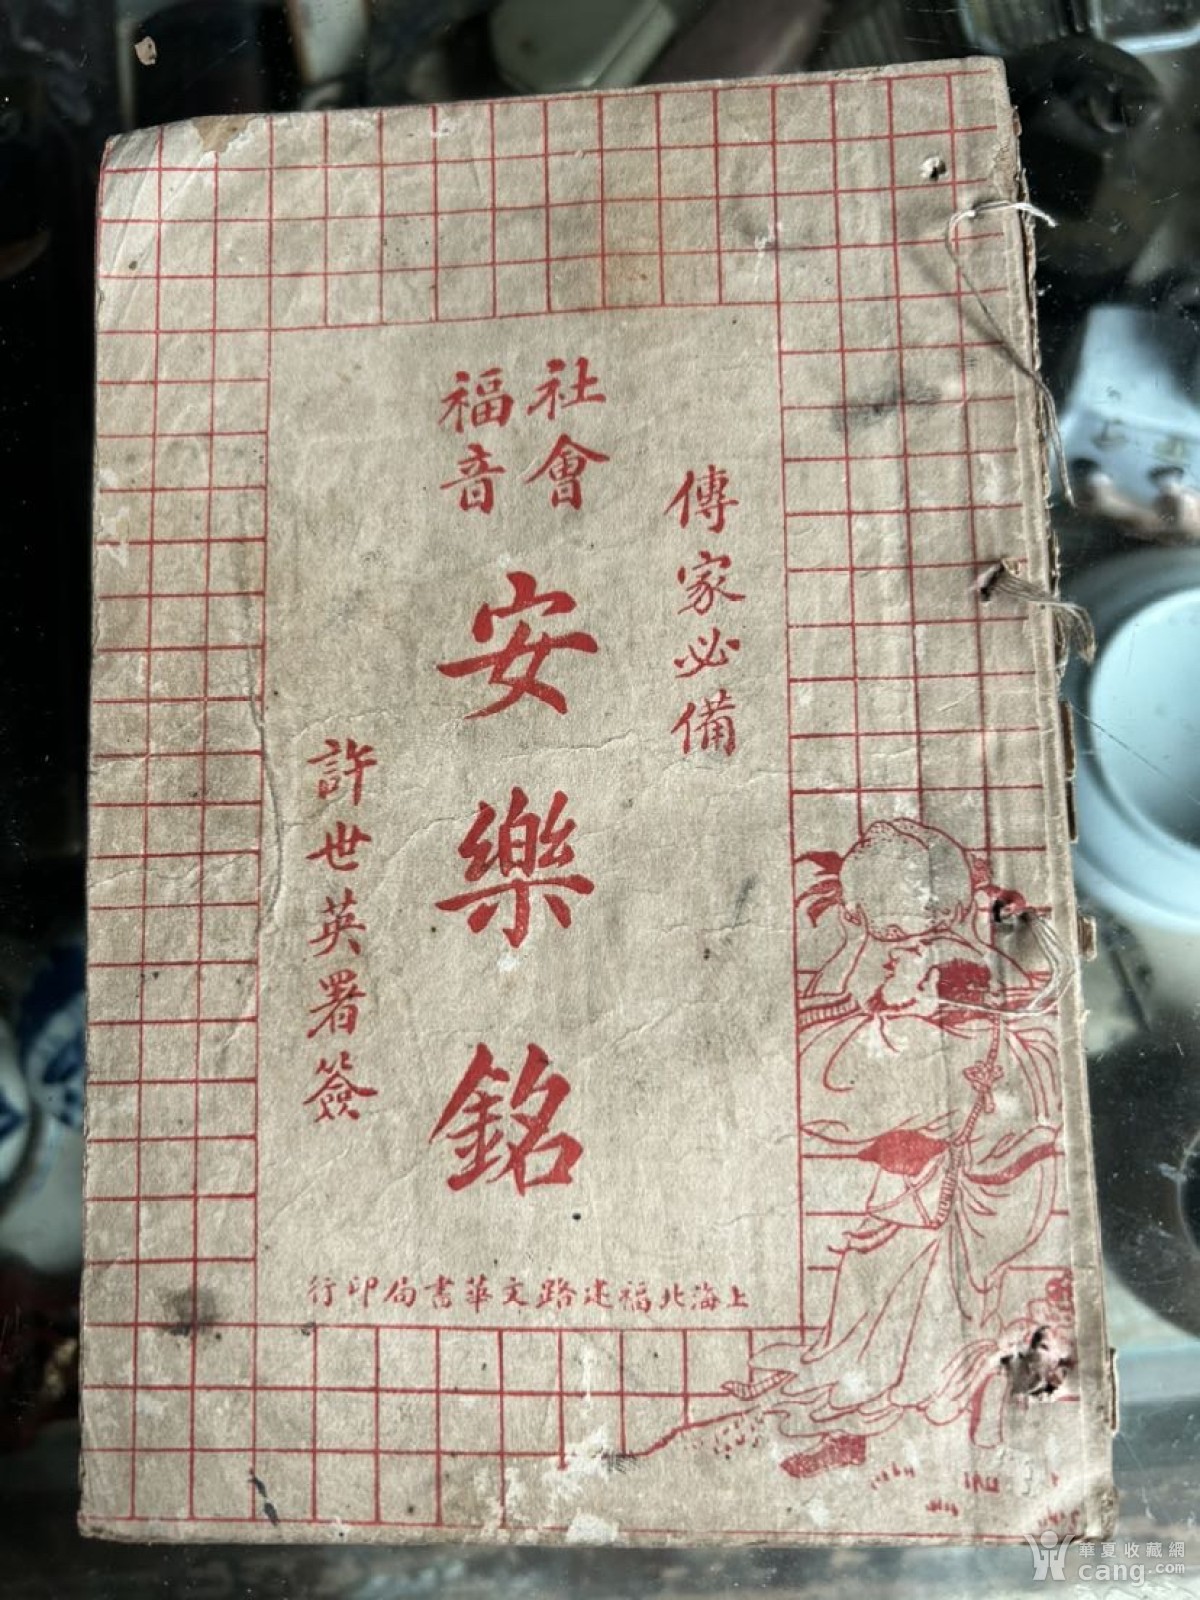 傳家必備
社會
福音
安樂銘
許世英署簽
上海北福建路文華書局印行
華夏收藏網
cang.com